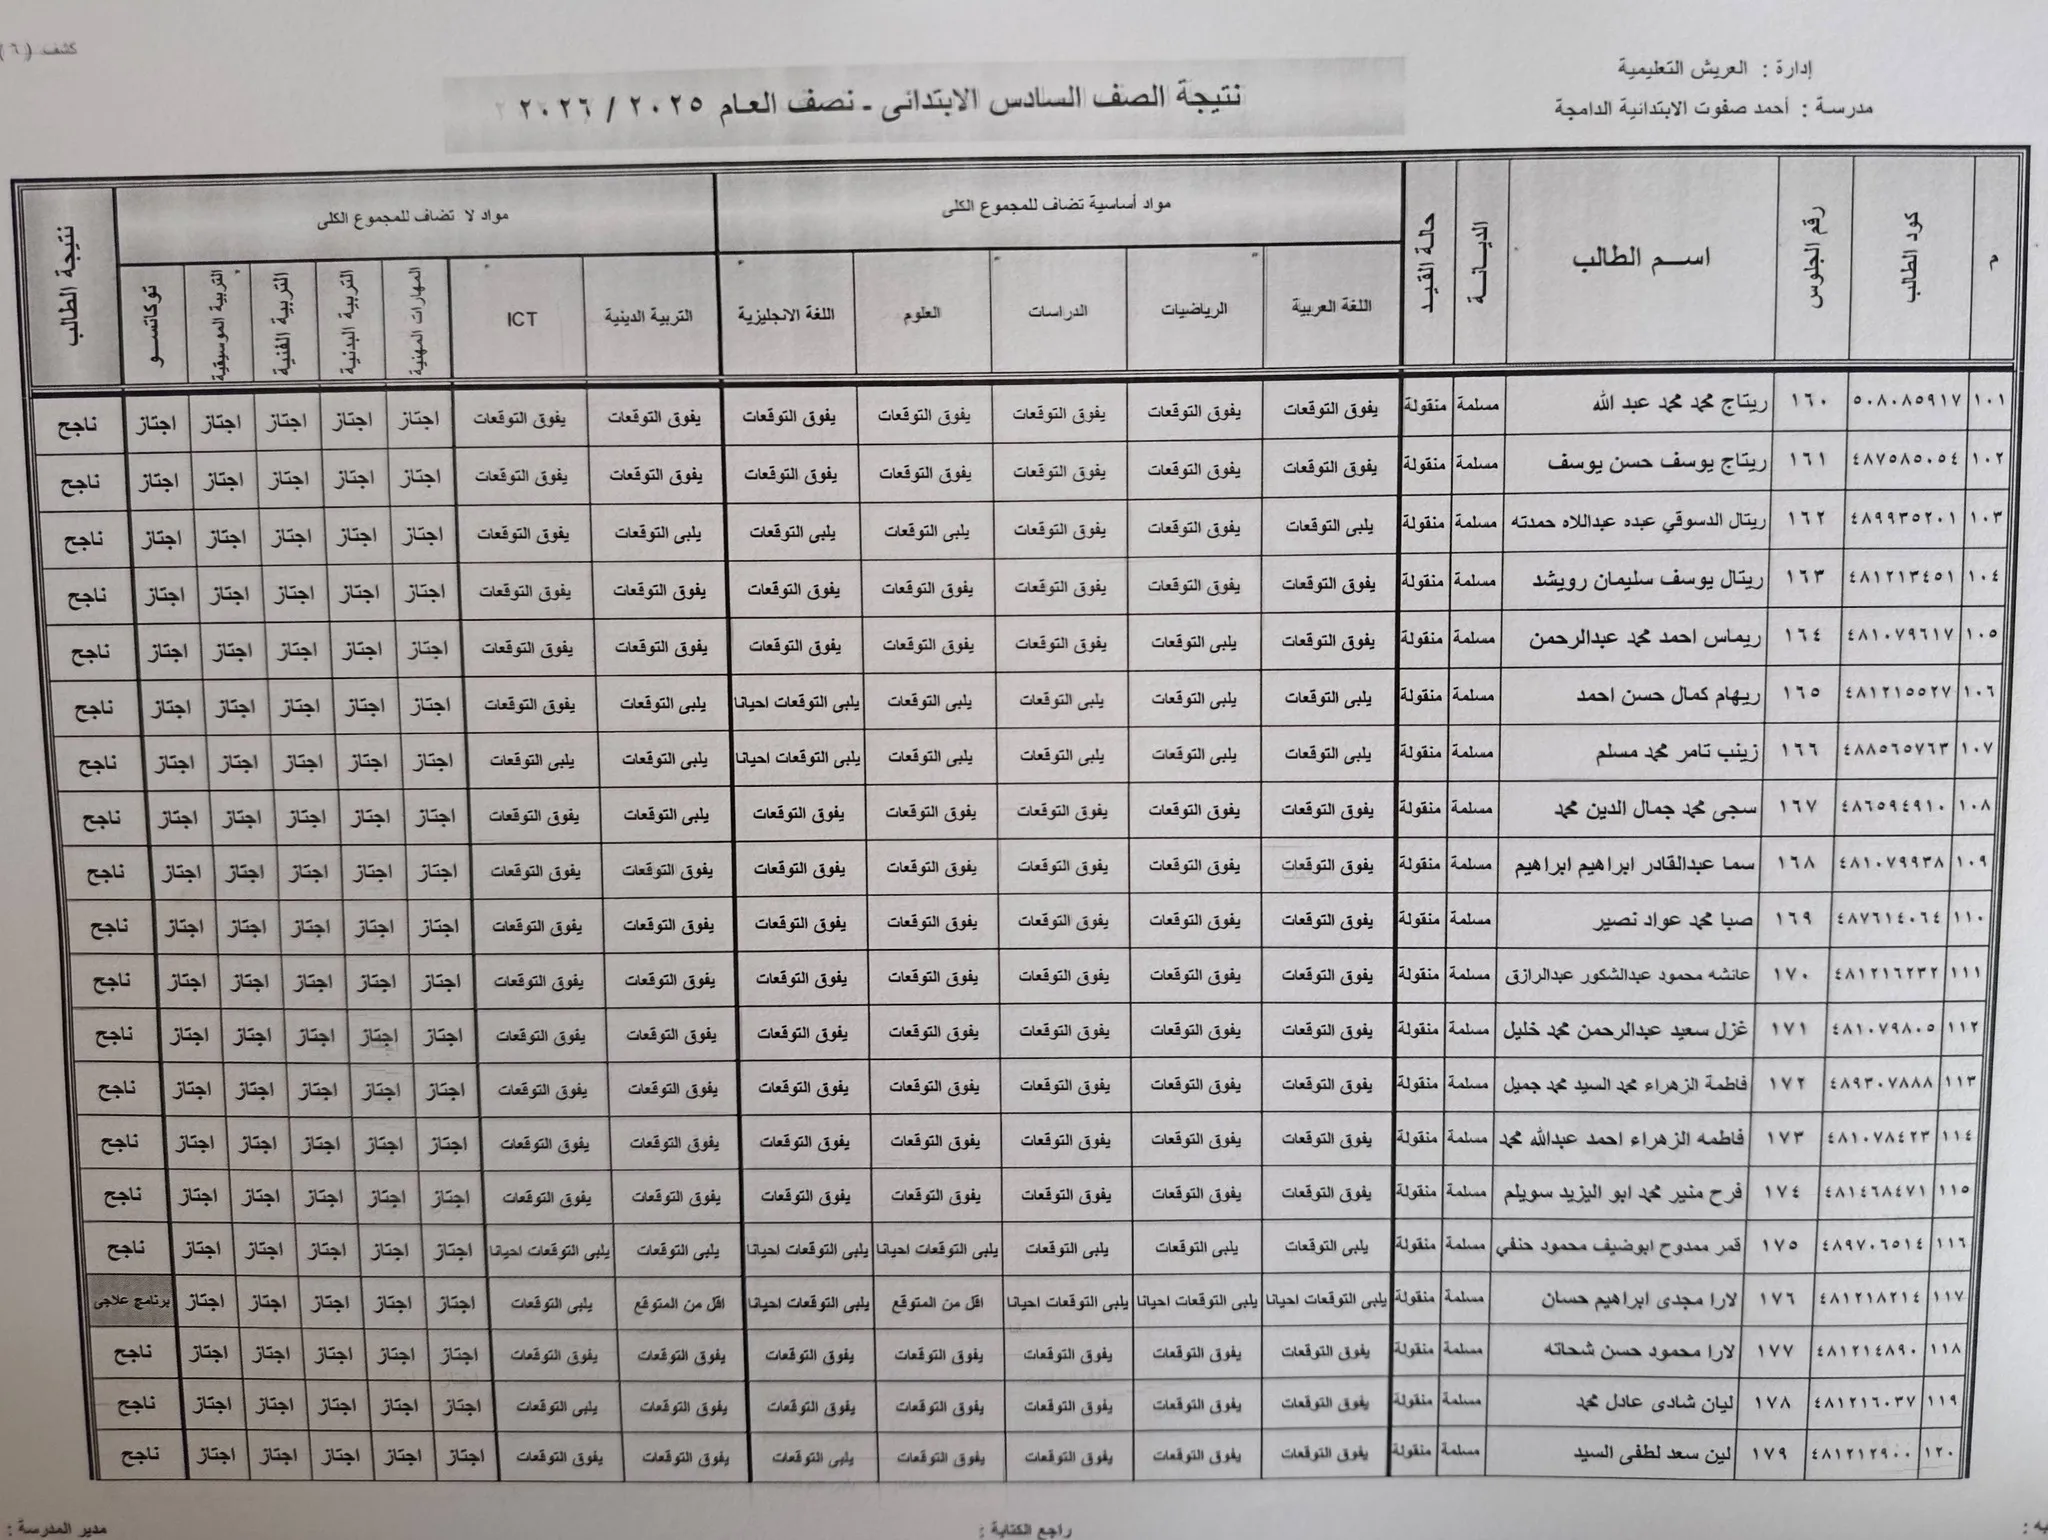 كشف (٦)
إدارة : العريش التعليمية
مدرسة : أحمد صفوت الابتدائية الدامجة
نتيجة الصف السادس الابتدائى - نصف العام ٢٠٢٥ / ٢٠٢٦
م | كود الطالب | رقم الجلوس | اســم الطالب | الديانــة | حالة القيد | مواد أساسية تضاف للمجموع الكلى | مواد لا تضاف للمجموع الكلى | نتيجة الطالب
اللغة العربية | الرياضيات | الدراسات | العلوم | اللغة الانجليزية | التربية الدينية | ICT | المهارات المهنية | التربية البدنية | التربية الفنية | التربية الموسيقية | توكاتسو
١٠١ | ٥٠٨٠٨٥٩١٧ | ١٦٠ | ريتاج محمد محمد عبد الله | مسلمة | منقولة | يفوق التوقعات | يفوق التوقعات | يفوق التوقعات | يفوق التوقعات | يفوق التوقعات | يفوق التوقعات | يفوق التوقعات | اجتاز | اجتاز | اجتاز | اجتاز | اجتاز | ناجح
١٠٢ | ٤٨٧٥٨٥٠٥٤ | ١٦١ | ريتاج يوسف حسن يوسف | مسلمة | منقولة | يفوق التوقعات | يفوق التوقعات | يفوق التوقعات | يفوق التوقعات | يفوق التوقعات | يفوق التوقعات | يفوق التوقعات | اجتاز | اجتاز | اجتاز | اجتاز | اجتاز | ناجح
١٠٣ | ٤٨٩٩٣٥٢٠١ | ١٦٢ | ريتال الدسوقي عبده عبداللاه حمدته | مسلمة | منقولة | يلبى التوقعات | يفوق التوقعات | يفوق التوقعات | يلبى التوقعات | يلبى التوقعات | يلبى التوقعات | يفوق التوقعات | اجتاز | اجتاز | اجتاز | اجتاز | اجتاز | ناجح
١٠٤ | ٤٨١٢١٣٤٥١ | ١٦٣ | ريتال يوسف سليمان رويشد | مسلمة | منقولة | يفوق التوقعات | يفوق التوقعات | يفوق التوقعات | يفوق التوقعات | يفوق التوقعات | يفوق التوقعات | يفوق التوقعات | اجتاز | اجتاز | اجتاز | اجتاز | اجتاز | ناجح
١٠٥ | ٤٨١٠٧٩٦١٧ | ١٦٤ | ريماس احمد محمد عبدالرحمن | مسلمة | منقولة | يفوق التوقعات | يلبى التوقعات | يفوق التوقعات | يفوق التوقعات | يفوق التوقعات | يفوق التوقعات | يفوق التوقعات | اجتاز | اجتاز | اجتاز | اجتاز | اجتاز | ناجح
١٠٦ | ٤٨١٢١٥٥٢٧ | ١٦٥ | ريهام كمال حسن احمد | مسلمة | منقولة | يلبى التوقعات | يلبى التوقعات | يلبى التوقعات | يلبى التوقعات | يلبى التوقعات احيانا | يلبى التوقعات | يفوق التوقعات | اجتاز | اجتاز | اجتاز | اجتاز | اجتاز | ناجح
١٠٧ | ٤٨٨٥٦٥٧٦٣ | ١٦٦ | زينب تامر محمد مسلم | مسلمة | منقولة | يلبى التوقعات | يلبى التوقعات | يلبى التوقعات | يلبى التوقعات | يلبى التوقعات احيانا | يلبى التوقعات | يلبى التوقعات | اجتاز | اجتاز | اجتاز | اجتاز | اجتاز | ناجح
١٠٨ | ٤٨٦٥٩٤٩١٠ | ١٦٧ | سجى محمد جمال الدين محمد | مسلمة | منقولة | يفوق التوقعات | يفوق التوقعات | يفوق التوقعات | يفوق التوقعات | يفوق التوقعات | يلبى التوقعات | يفوق التوقعات | اجتاز | اجتاز | اجتاز | اجتاز | اجتاز | ناجح
١٠٩ | ٤٨١٠٧٩٩٣٨ | ١٦٨ | سما عبدالقادر ابراهيم ابراهيم | مسلمة | منقولة | يفوق التوقعات | يفوق التوقعات | يفوق التوقعات | يفوق التوقعات | يفوق التوقعات | يفوق التوقعات | يفوق التوقعات | اجتاز | اجتاز | اجتاز | اجتاز | اجتاز | ناجح
١١٠ | ٤٨٧٦١٤٠٦٤ | ١٦٩ | صبا محمد عواد نصير | مسلمة | منقولة | يفوق التوقعات | يفوق التوقعات | يفوق التوقعات | يفوق التوقعات | يفوق التوقعات | يفوق التوقعات | يفوق التوقعات | اجتاز | اجتاز | اجتاز | اجتاز | اجتاز | ناجح
١١١ | ٤٨١٢١٦٢٣٢ | ١٧٠ | عائشه محمود عبدالشكور عبدالرازق | مسلمة | منقولة | يفوق التوقعات | يفوق التوقعات | يفوق التوقعات | يفوق التوقعات | يفوق التوقعات | يفوق التوقعات | يفوق التوقعات | اجتاز | اجتاز | اجتاز | اجتاز | اجتاز | ناجح
١١٢ | ٤٨١٠٧٩٨٠٥ | ١٧١ | غزل سعيد عبدالرحمن محمد خليل | مسلمة | منقولة | يفوق التوقعات | يفوق التوقعات | يفوق التوقعات | يفوق التوقعات | يفوق التوقعات | يفوق التوقعات | يفوق التوقعات | اجتاز | اجتاز | اجتاز | اجتاز | اجتاز | ناجح
١١٣ | ٤٨٩٣٠٧٨٨٨ | ١٧٢ | فاطمة الزهراء محمد السيد محمد جميل | مسلمة | منقولة | يفوق التوقعات | يفوق التوقعات | يفوق التوقعات | يفوق التوقعات | يفوق التوقعات | يفوق التوقعات | يفوق التوقعات | اجتاز | اجتاز | اجتاز | اجتاز | اجتاز | ناجح
١١٤ | ٤٨١٠٧٨٤٢٣ | ١٧٣ | فاطمه الزهراء احمد عبدالله محمد | مسلمة | منقولة | يفوق التوقعات | يفوق التوقعات | يفوق التوقعات | يفوق التوقعات | يفوق التوقعات | يفوق التوقعات | يفوق التوقعات | اجتاز | اجتاز | اجتاز | اجتاز | اجتاز | ناجح
١١٥ | ٤٨١٤٦٨٤٧١ | ١٧٤ | فرح منير محمد ابو اليزيد سويلم | مسلمة | منقولة | يفوق التوقعات | يفوق التوقعات | يفوق التوقعات | يفوق التوقعات | يفوق التوقعات | يفوق التوقعات | يفوق التوقعات | اجتاز | اجتاز | اجتاز | اجتاز | اجتاز | ناجح
١١٦ | ٤٨٩٧٠٦٥١٤ | ١٧٥ | قمر ممدوح ابوضيف محمود حنفي | مسلمة | منقولة | يلبى التوقعات | يلبى التوقعات | يلبى التوقعات | يلبى التوقعات احيانا | يلبى التوقعات احيانا | يلبى التوقعات | يلبى التوقعات احيانا | اجتاز | اجتاز | اجتاز | اجتاز | اجتاز | ناجح
١١٧ | ٤٨١٢١٨٢١٤ | ١٧٦ | لارا مجدى ابراهيم حسان | مسلمة | منقولة | يلبى التوقعات احيانا | يلبى التوقعات احيانا | يلبى التوقعات احيانا | اقل من المتوقع | يلبى التوقعات احيانا | اقل من المتوقع | يلبى التوقعات | اجتاز | اجتاز | اجتاز | اجتاز | اجتاز | برنامج علاجى
١١٨ | ٤٨١٢١٤٨٩٠ | ١٧٧ | لارا محمود حسن شحاته | مسلمة | منقولة | يفوق التوقعات | يفوق التوقعات | يفوق التوقعات | يفوق التوقعات | يفوق التوقعات | يفوق التوقعات | يفوق التوقعات | اجتاز | اجتاز | اجتاز | اجتاز | اجتاز | ناجح
١١٩ | ٤٨١٢١٦٠٣٧ | ١٧٨ | ليان شادى عادل محمد | مسلمة | منقولة | يفوق التوقعات | يفوق التوقعات | يفوق التوقعات | يفوق التوقعات | يفوق التوقعات | يفوق التوقعات | يلبى التوقعات | اجتاز | اجتاز | اجتاز | اجتاز | اجتاز | ناجح
١٢٠ | ٤٨١٢١٢٩٠٠ | ١٧٩ | لين سعد لطفى السيد | مسلمة | منقولة | يفوق التوقعات | يفوق التوقعات | يفوق التوقعات | يفوق التوقعات | يلبى التوقعات | يفوق التوقعات | يفوق التوقعات | اجتاز | اجتاز | اجتاز | اجتاز | اجتاز | ناجح
راجع الكتابة :
مدير المدرسة :